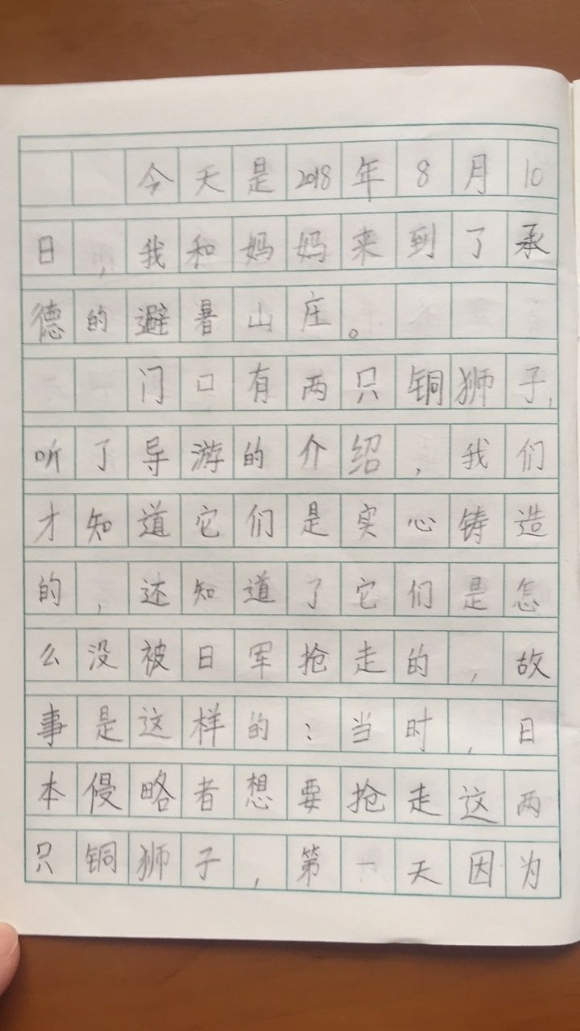 今天是2018年8月10
日,我和妈妈来到了承
德的避暑山庄。
门口有两只铜狮子,
听了导游的介绍,我们
才知道它们是实心铸造
的,还知道了它们是怎
么没被日军抢走的,故
事是这样的:当时,日
本侵略者想要抢走这两
只铜狮子,第一天因为